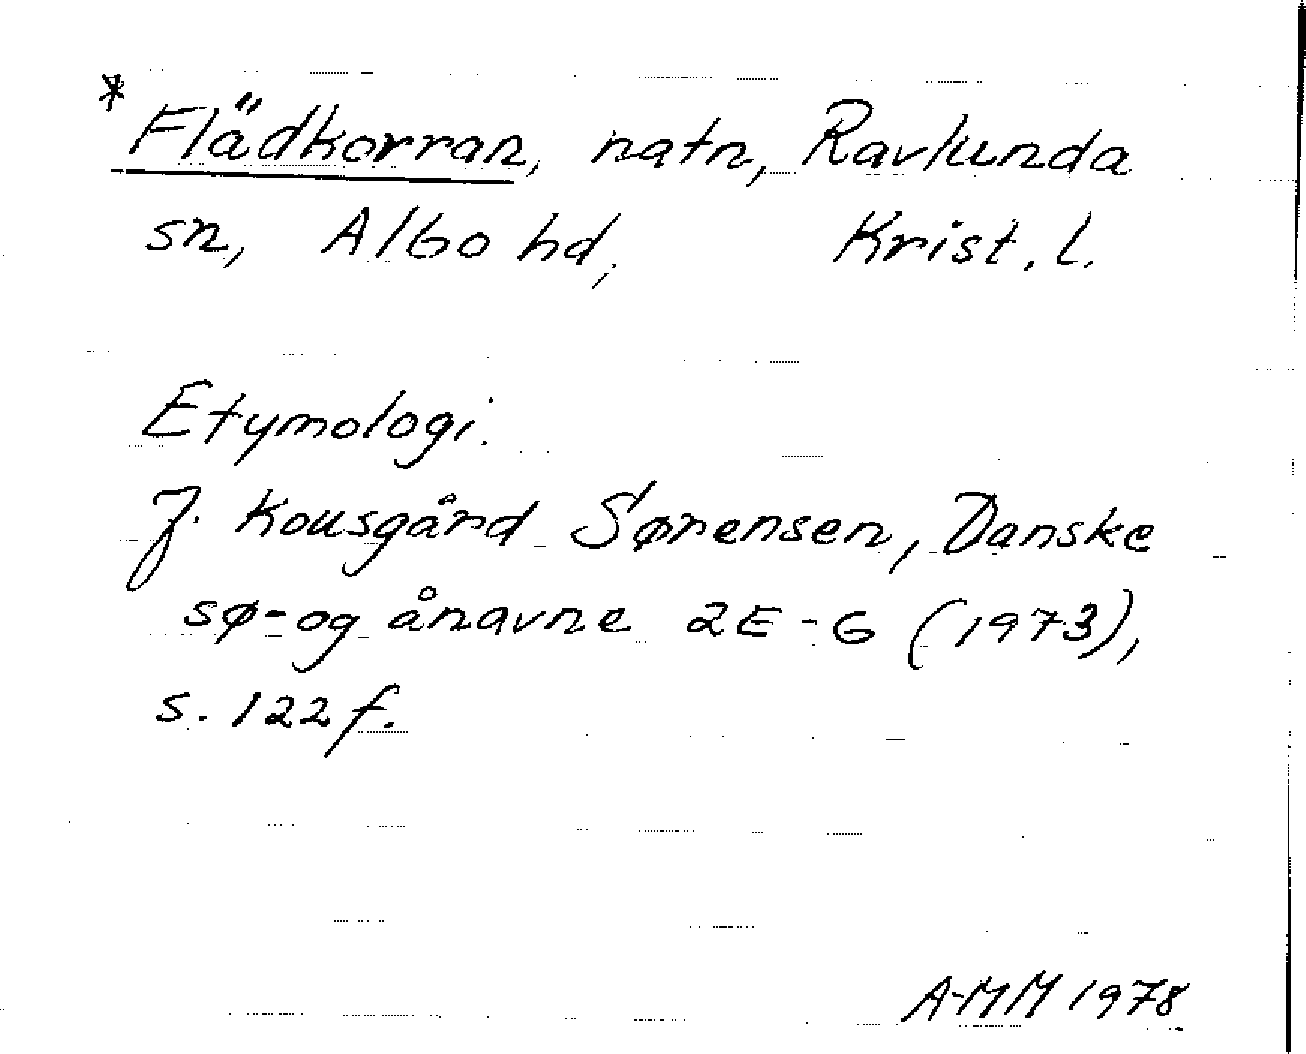 * Flädkorran, natn, Ravlunda
sn, Albo hd, Krist. l.
Etymologi.
J. Kousgård Sørensen, Danske
sø- og ånavne 2E-G (1973),
s. 122 f.
A-MM 1978